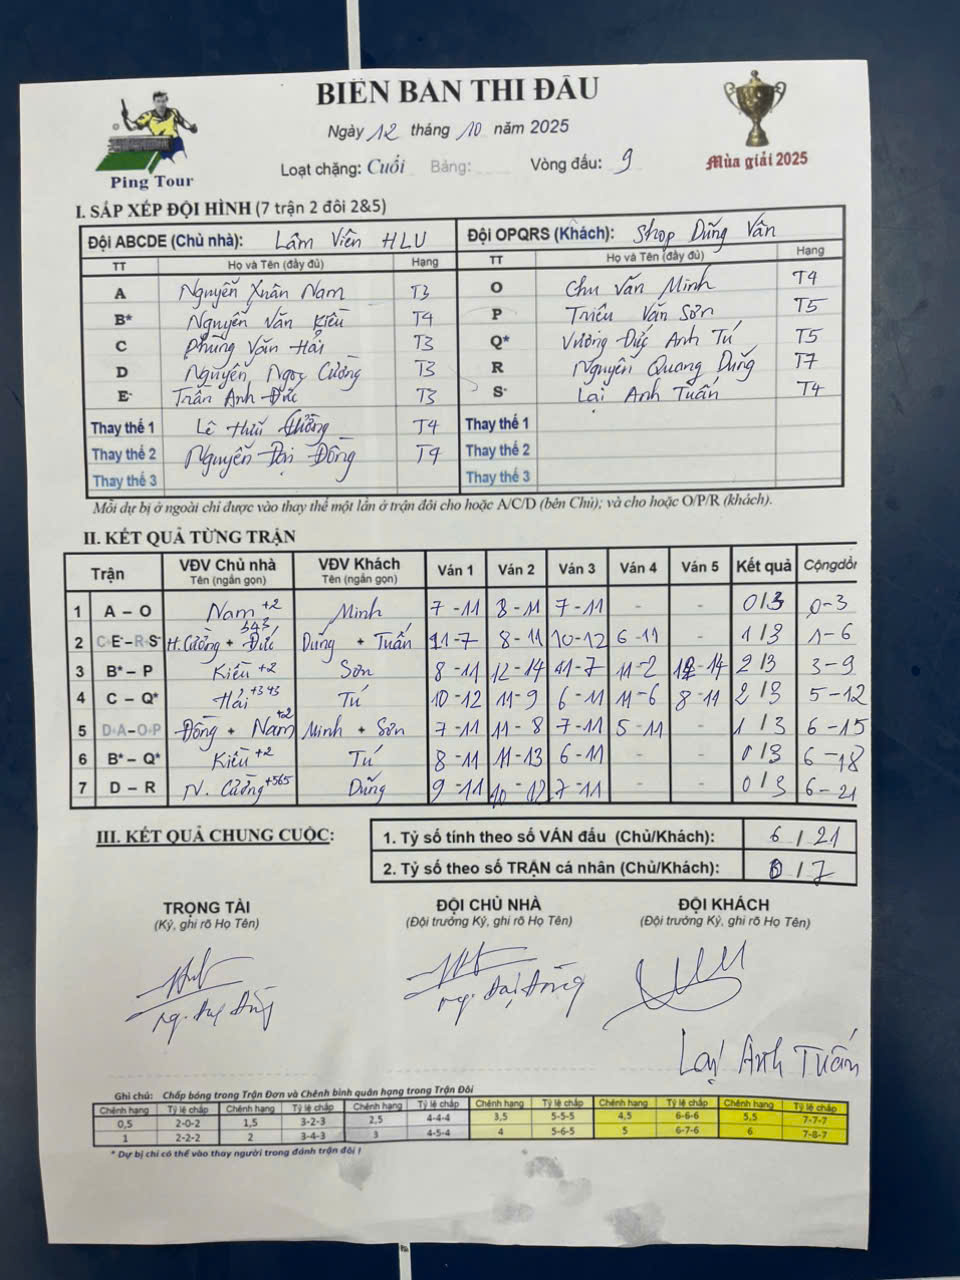 BIÊN BẢN THI ĐẤU
Ngày 12 tháng 10 năm 2025
Loạt chặng: Cuối Bảng: Vòng đấu: 9
Ping Tour
Mùa giải 2025
I. SẮP XẾP ĐỘI HÌNH (7 trận 2 đôi 2&5)
Đội ABCDE (Chủ nhà): Lâm Viên HLU Đội OPQRS (Khách): Shop Dũng Vân
TT Họ và Tên (đầy đủ) Hạng TT Họ và Tên (đầy đủ) Hạng
A Nguyễn Xuân Nam T3 O Chu Văn Minh T4
B* Nguyễn Văn Kiều T4 P Triệu Văn Sơn T5
C Phùng Văn Hải T3 Q* Vương Đức Anh Tú T5
D Nguyễn Ngọc Cường T3 R Nguyễn Quang Dũng T7
E- Trần Anh Đức T3 S- Lại Anh Tuấn T4
Thay thế 1 Lê Hữu T4 Thay thế 1
Thay thế 2 Nguyễn Đại Đồng T4 Thay thế 2
Thay thế 3 Thay thế 3
Mỗi dự bị ở ngoài chỉ được vào thay thế một lần ở trận đôi cho hoặc A/C/D (bên Chủ); và cho hoặc O/P/R (khách).
II. KẾT QUẢ TỪNG TRẬN
Trận VĐV Chủ nhà Tên (ngắn gọn) VĐV Khách Tên (ngắn gọn) Ván 1 Ván 2 Ván 3 Ván 4 Ván 5 Kết quả Cộngdồn
1 A – O Nam +2 Minh 7 - 11 8 - 11 7 - 11 - - 0/3 0-3
2 C+E-–R+S- H.Cường + Đức 343 Dũng + Tuấn 11-7 8 - 11 10-12 6 - 11 - 1/3 1-6
3 B* – P Kiều +2 Sơn 8 - 11 12 - 14 11 - 7 11 - 2 12 - 14 2/3 3-9
4 C – Q* Hải +343 Tú 10 - 12 11 - 9 6 - 11 11 - 6 8 - 11 2/3 5-12
5 D+A–O+P Đồng + Nam +2 Minh + Sơn 7 - 11 11 - 8 7 - 11 5 - 11 - 1/3 6-15
6 B* – Q* Kiều +2 Tú 8 - 11 11 - 13 6 - 11 - - 0/3 6-18
7 D – R N. Cường +565 Dũng 9 - 11 10 - 12 7 - 11 - - 0/3 6-21
III. KẾT QUẢ CHUNG CUỘC:
1. Tỷ số tính theo số VÁN đấu (Chủ/Khách): 6 / 21
2. Tỷ số theo số TRẬN cá nhân (Chủ/Khách): 0 / 7
TRỌNG TÀI ĐỘI CHỦ NHÀ ĐỘI KHÁCH
(Ký, ghi rõ Họ Tên) (Đội trưởng Ký, ghi rõ Họ Tên) (Đội trưởng Ký, ghi rõ Họ Tên)
Ng. Đại Đồng
Lại Anh Tuấn
Ghi chú: Chấp bóng trong Trận Đơn và Chênh bình quân hạng trong Trận Đôi
Chênh hạng Tỷ lệ chấp Chênh hạng Tỷ lệ chấp Chênh hạng Tỷ lệ chấp Chênh hạng Tỷ lệ chấp Chênh hạng Tỷ lệ chấp Chênh hạng Tỷ lệ chấp
0,5 2-0-2 1,5 3-2-3 2,5 4-4-4 3,5 5-5-5 4,5 6-6-6 5,5 7-7-7
1 2-2-2 2 3-4-3 3 4-5-4 4 5-6-5 5 6-7-6 6 7-8-7
* Dự bị chỉ có thể vào thay người trong đánh trận đôi !